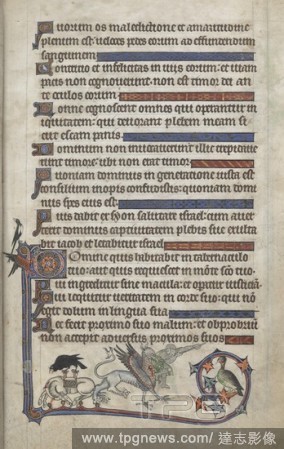 Quorum os maledictione et amaritudine
plenum est: veloces pedes eorum ad effundendum
sanguinem
Contritio et infelicitas in viis eorum: et viam
pacis non cognoverunt: non est timor dei an
te oculos eorum
Nonne cognoscent omnes qui operantur in
iquitatem: qui devorant plebem meam si
cut escam panis
Dominum non invocaverunt: illic trepidave
runt timore: ubi non erat timor
Quoniam dominus in generatione iusta est:
consilium inopis confudistis: quoniam domi
nus spes eius est
Quis dabit ex syon salutare israel: cum aver
terit dominus captivitatem plebis sue exulta
bit iacob et letabitur israel
Domine quis habitabit in tabernaculo
tuo: aut quis requiescet in monte sancto tuo
Qui ingreditur sine macula: et operatur iusticiam
Qui loquitur veritatem in corde suo: qui non
egit dolum in lingua sua
Nec fecit proximo suo malum: et obprobrium
non accepit adversus proximos suos
TPG
www.tpgnews.com / 達志影像